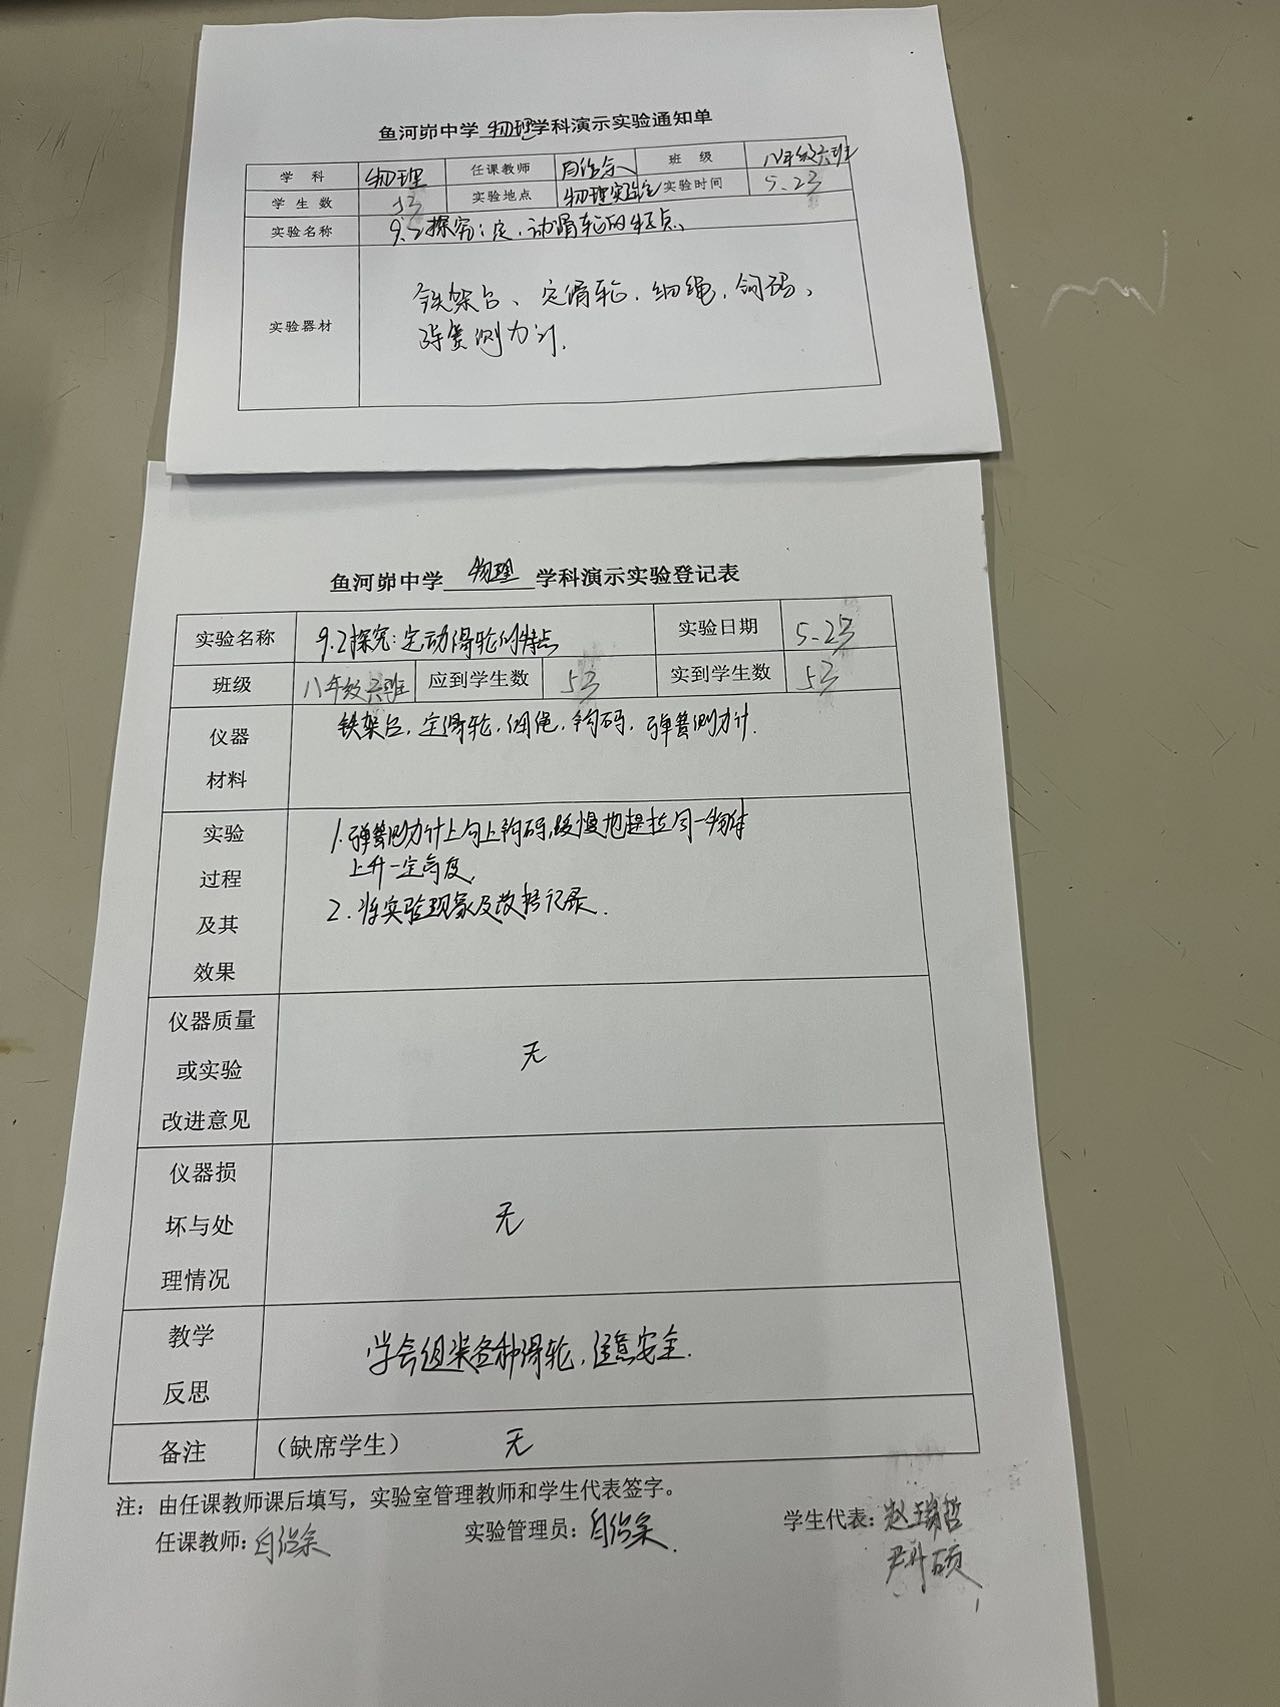 鱼河峁中学 物理学科演示实验通知单
学 科 物理 任课教师 班 级 八年级六班
学生数 53 实验地点 物理实验室 实验时间 5.23
实验名称 9.2探究:定、动滑轮的特点
实验器材
铁架台、定滑轮、细绳、钩码、
弹簧测力计.
鱼河峁中学 物理 学科演示实验登记表
实验名称 9.2探究:定动滑轮的特点 实验日期 5.23
班级 八年级六班 应到学生数 53 实到学生数 53
仪器
材料
铁架台,定滑轮,细绳,钩码,弹簧测力计.
实验
过程
及其
效果
1.弹簧测力计上勾上钩码,缓慢地提拉同一物体
上升一定高度,
2.将实验现象及数据记录.
仪器质量
或实验
改进意见
无
仪器损
坏与处
理情况
无
教学
反思
学会组装各种滑轮,注意安全.
备注 (缺席学生) 无
注:由任课教师课后填写,实验室管理教师和学生代表签字。
任课教师: 实验管理员: 学生代表:赵瑞哲